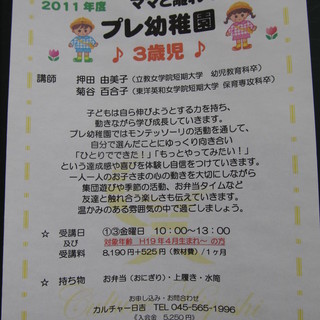 2011年度
ママと離れ
プレ幼稚園
♪ 3歳児 ♪
講師 押田 由美子(立教女学院短期大学 幼児教育科卒)
菊谷 百合子(東洋英和女学院短期大学 保育専攻科卒)
子どもは自ら伸びようとする力を持ち、
動きながら学び成長していきます。
プレ幼稚園ではモンテッソーリの活動を通して、
自分で選んだことにゆっくり向き合い
「ひとりでできた!」「もっとやってみたい!」
という達成感や喜びを体験し自信をつけていきます。
一人一人のお子さまの心の動きを大切にしながら
集団遊びや季節の活動、お弁当タイムなど
友達と触れ合う楽しさも伝えていきます。
温かみのある雰囲気の中で過ごしましょう。
☆ 受講日 ①③金曜日 10:00~13:00
&び 対象年齢 H19年4月生まれ~の方
受講料 8,190円+525円(教材費)/1ヶ月
☆ 持ち物 お弁当(おにぎり)・上履き・水筒
お申し込み・お問合わせ
カルチャー日吉 TEL 045-565-1996
《入会金 5,250円》